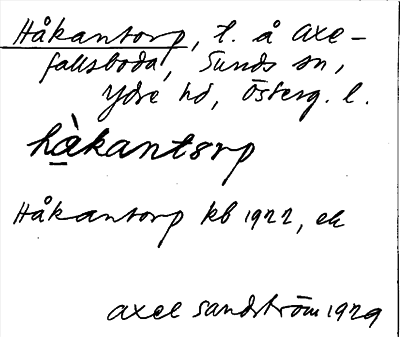 Håkantorp, t. å Axe-
fallsboda, Sunds sn,
Ydre hd, Österg. l.
hà̠kantorp
Håkantorp kb 1922, ek
Axel Sandström 1929